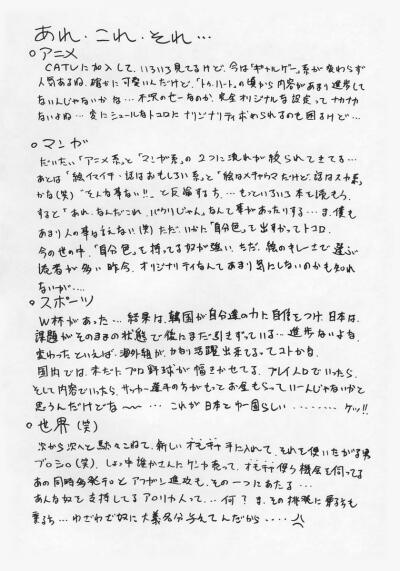 あれ・これ・それ…
○アニメ
CATVに加入して、いろいろ見てるけど、今は「ギャルゲー」系が変わらず
人気あるね。確かに可愛いんだけど、「トゥ.ハート」の頃から内容があまり進歩して
ないんじゃないかな…不況のせーなのか、完全オリジナルな設定ってナカナカ
ないよね…変にシュールなトコロにオリジナリティ求められるのも困るけど…
○マンガ
だいたい「アニメ系」と「マンガ系」の2つに流れが絞られてきてる…
あとは「絵イマイチ・話はおもしろい系」と「絵はメチャウマだけど、話はスカ系」
かな(笑)“そんな事ない!!”と反論する方、…もっといろいろ本を読もう。
すると「あれ、なんだこれ パクリじゃん」なんて事があったりする…ま、僕も
あまり人の事は言えない(笑)ただ、いかに「自分色」を出すかってトコロ。
今の世の中、「自分色」を持ってる奴が強い。ただ、絵のキレーさで選ぶ
読者が多い昨今、オリジナリティなんてあまり気にしないのかも知れ
ないが…。
○スポーツ
W杯があった…結果は、韓国が自分達の力に自信をつけ 日本は、
課題がそのままの状態で後にまだ引きずっている…進歩ないよね。
変わったといえば、海外組が、かなり活躍出来てるってコトかな。
国内では、未だにプロ野球が幅きかせてる。プレイ人口でいったら、
そして内容でいったら、サッカー選手の方がもっとお金もらっていーんじゃないかと
思うんだけどな〜…これが日本と中国らしい………ケッ!!
○世界(笑)
次から次へと駄々こねて、新しいオモチャ手に入れて、それを使いたがる男
ブロシロ(笑)、しょっ中誰かさんにケンカ売って、オモチャ使う機会を伺ってる
あの同時多発テロとアフガン進攻も、その一つにあたる…
あんな奴を支持してるアメリカ人って、…何？ま、その挑発に乗るも
乗るも…わざわざ奴に大義名分与えてんだから…・